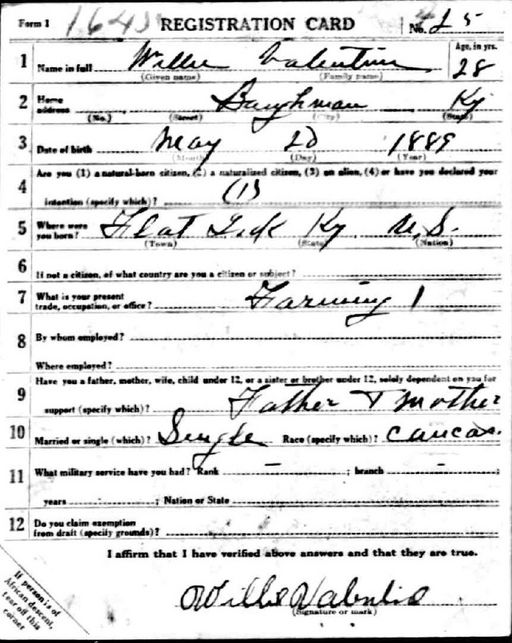 Form 1 1643 REGISTRATION CARD No. 25
1 Name in full Willie Valentine Age, in yrs. 28
(Given name) (Family name)
2 Home address Baughman Ky
(No.) (Street) (City) (State)
3 Date of birth May 20 1889
(Month) (Day) (Year)
4 Are you (1) a natural-born citizen, (2) a naturalized citizen, (3) an alien, (4) or have you declared your
intention (specify which)? (1)
5 Where were you born? Flat Lick Ky U.S.
(Town) (State) (Nation)
6 If not a citizen, of what country are you a citizen or subject?
7 What is your present trade, occupation, or office? Farming 1
8 By whom employed?
Where employed?
9 Have you a father, mother, wife, child under 12, or a sister or brother under 12, solely dependent on you for
support (specify which)? Father & Mother
10 Married or single (which)? Single Race (specify which)? Caucas.
11 What military service have you had? Rank – ; branch –
years ; Nation or State
12 Do you claim exemption from draft (specify grounds)?
I affirm that I have verified above answers and that they are true.
Willie
(Signature or mark)
If person is of
African descent,
tear off this
corner